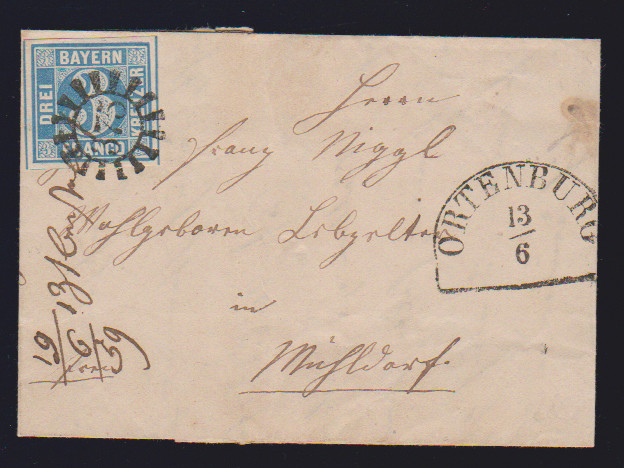 BAYERN
DREI
KREUZER
FRANCO
Herrn
Franz Niggl
Wohlgeboren Lebzelter
in
Mühldorf.
ORTENBURG
13
6
19
6 59